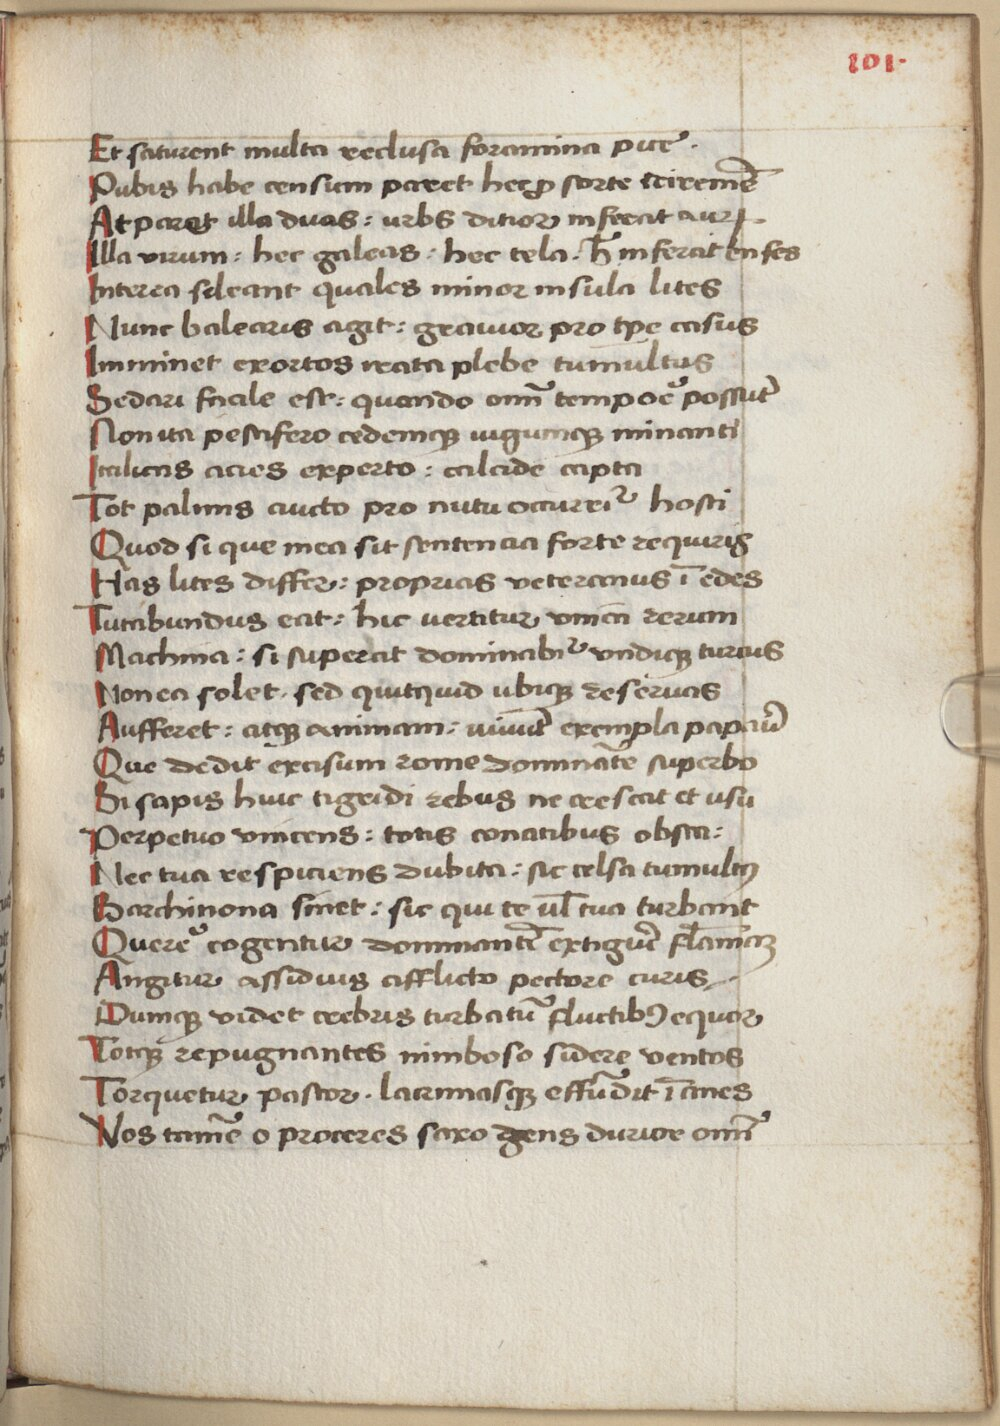 101.
Et saturent multa reclusa foramina puce᷒.
Pubis habe censum paret hec ꝓ sorte triremē
At paret illa duas: urbs ditior inferat aurꝝ
Illa virum: hec galeas: hec tela. h̄ inferat enses
Interea sileant quales minor insula lites
Nunc balearis agit: grauior pro tp̄e casus
Imminet exortos irata plebe tumultus
Sedari facile est: quando om̄i tempoē possūt
Non ita pestifero cedemqꝫ iugumqꝫ minanti
Italicas acies experto: calcide capta
Tot palmis aucto pro nutu occurrei᷑ hosti
Quod si que mea sit sentencia forte requiris
Has lites differ: proprias veteranus ī edes
Tutabundus eat: hic vertitur vnica rerum
Machina: si superat dominabi᷑ vndiqꝫ turcus
Non ea solet. sed quitquid ubiqꝫ reseruas
Aufferet: atqꝫ animam: uiuūt exempla papaūi
Que dedit excisum rome domināte superbo
Si sapis huic tigridi rebus ne crescat et usu
Perpetuo vincens: totis conatibus obsta:
Nec tua respiciens dubita: sic celsa tumultꝰ
Barchinona sinet: sic qui te ul̄ tua turbant
Querē cogentur dominantē extiguē flam̄aꝫ
Angitur assiduis afflicto pectore curis
Dumqꝫ videt crebris turbatū fluctibꝰ equor
Totqꝫ repugnantes nimboso sidere ventos
Torquetur pastor. lacrimasqꝫ effūdit īanes
Vos tamē o proceres saxo gens durior om̄i